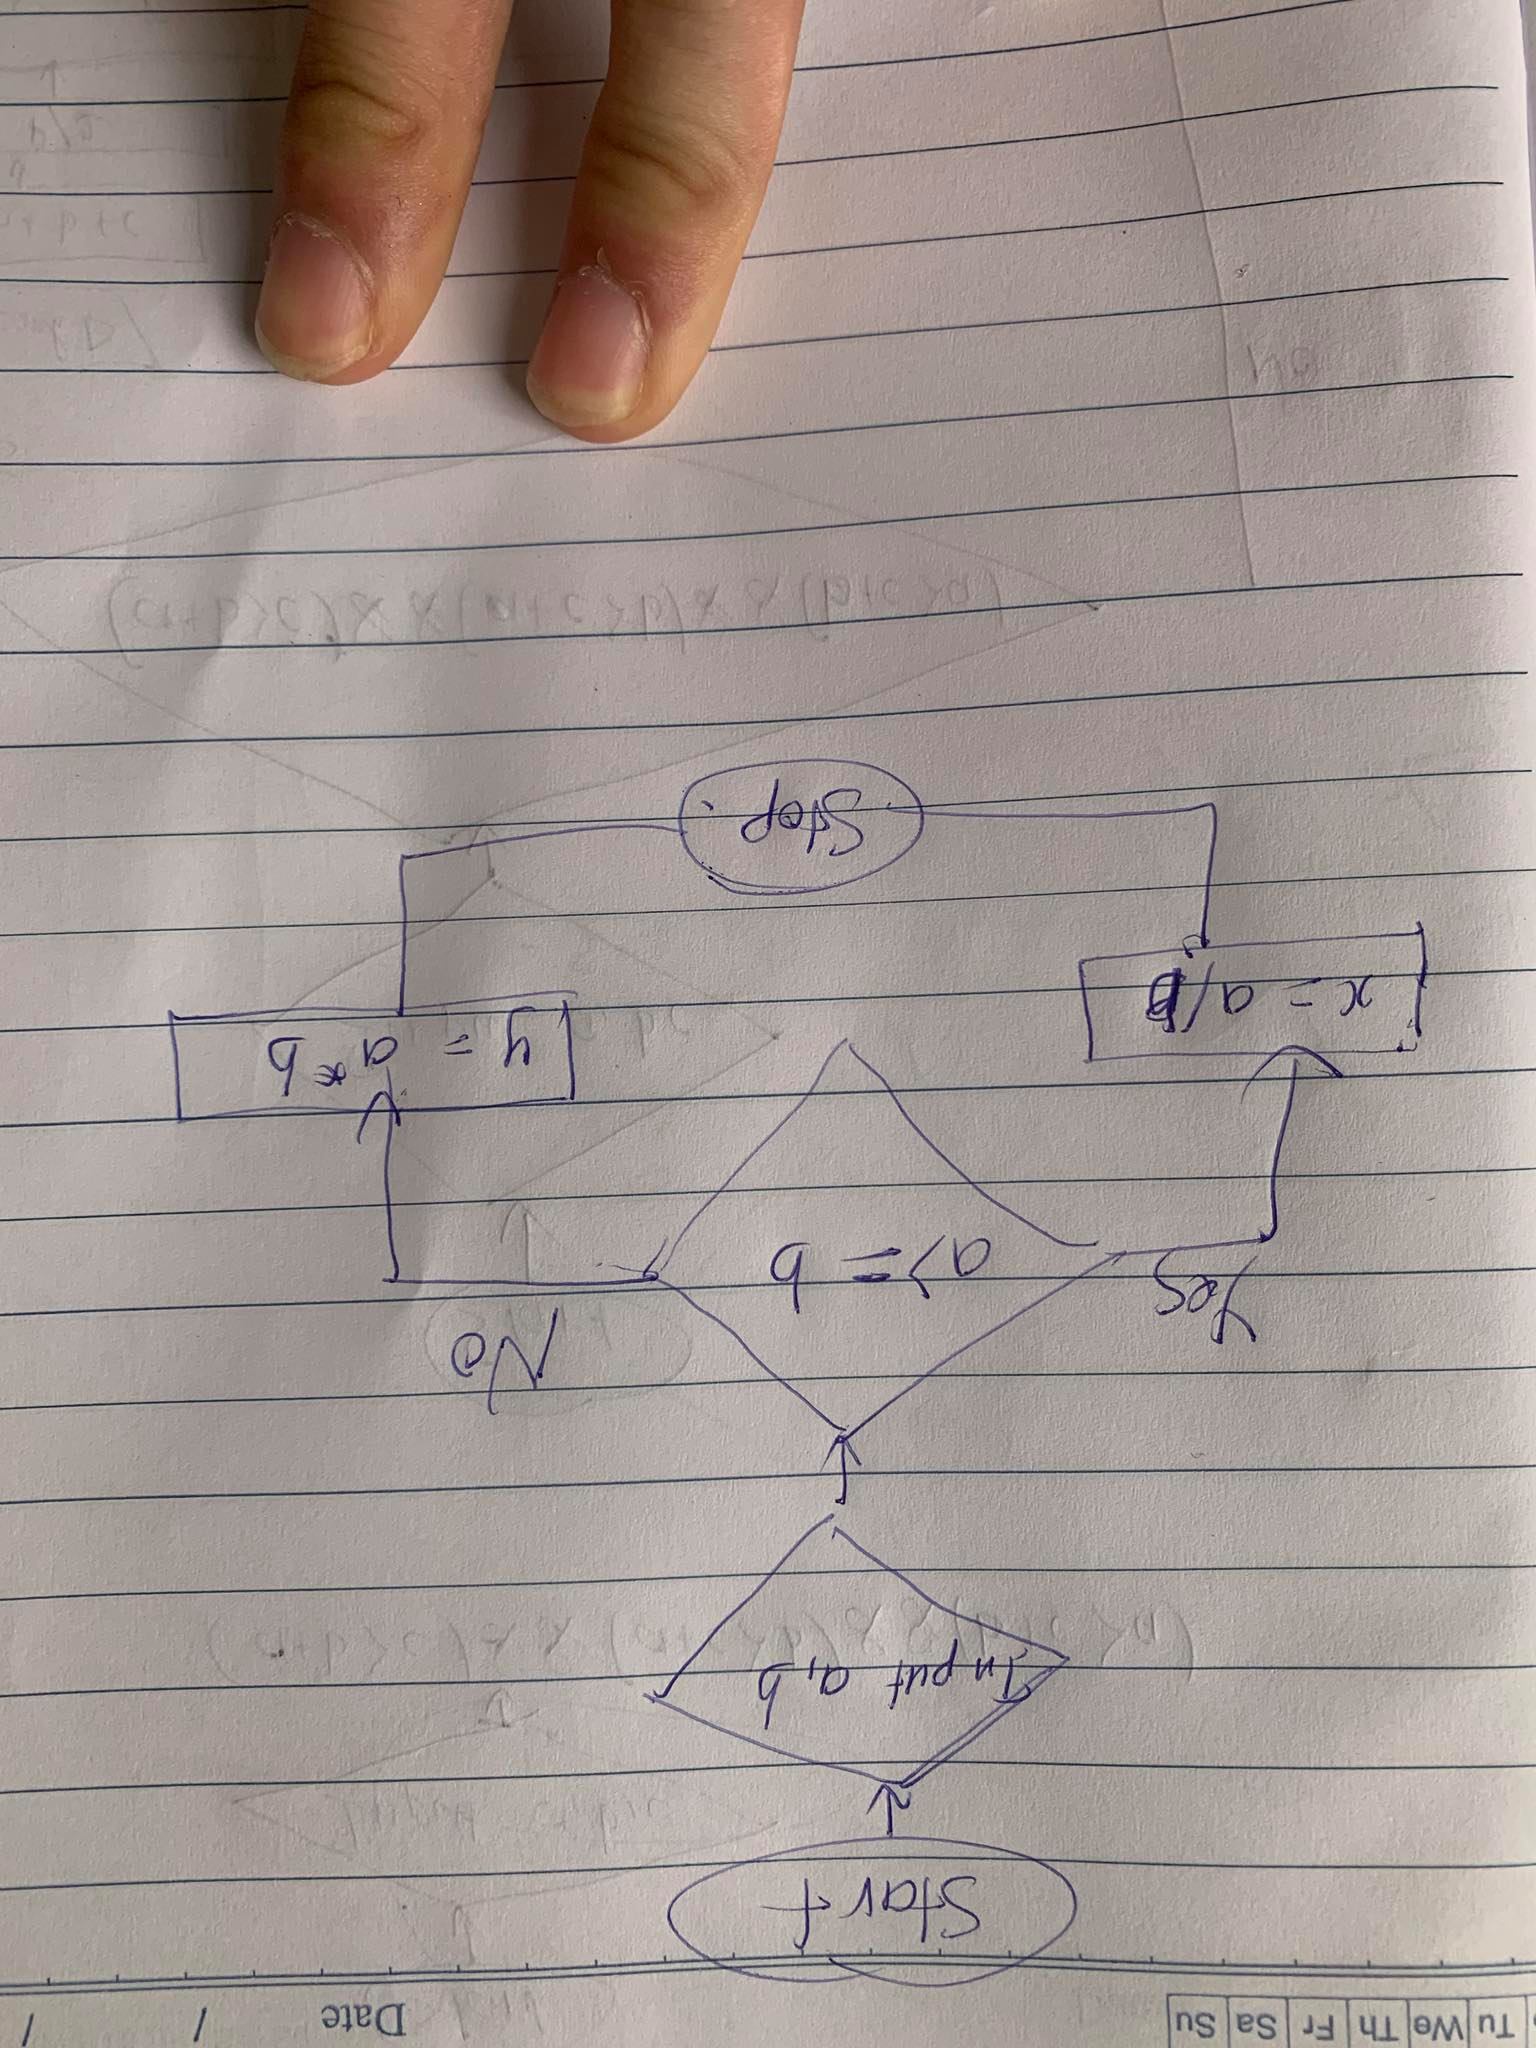 Tu We Th Fr Sa Su
Date / /
Start
Input a, b
a >= b
Yes
No
x = a/b
y = a * b
Stop.